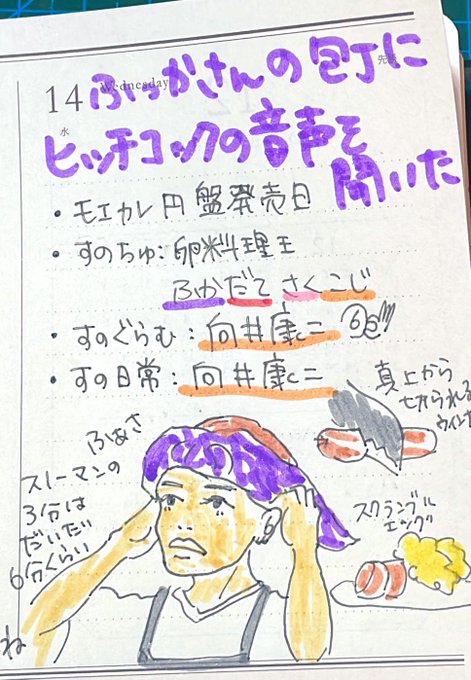 Wednesday
14 ふっかさんの包丁に
水 先勝
ヒッチコックの音声を
聞いた
・モエカレ円盤発売日
・すのちゅ:卵料理王
ふか だて さく こじ
・すのぐらむ:向井康二
・すの日常:向井康二
真上から
切られる
ウインナ
ふぁさ
スノーマンの
3分は
だいだい
6分くらい
スクランブル
エッグ
ね